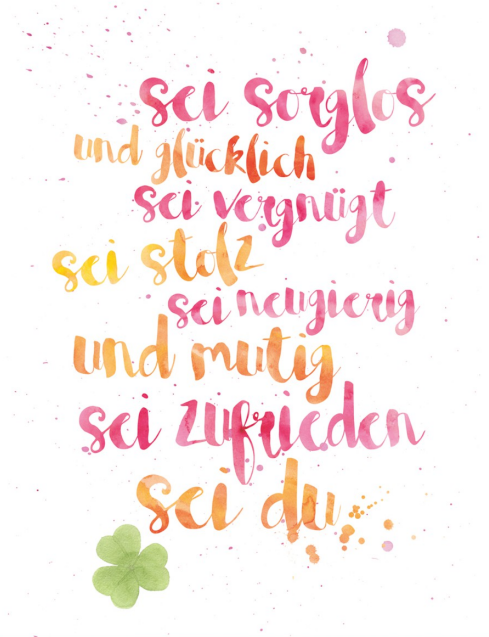 sei sorglos
und glücklich
sei vergnügt
sei stolz
sei neugierig
und mutig
sei zufrieden
sei du